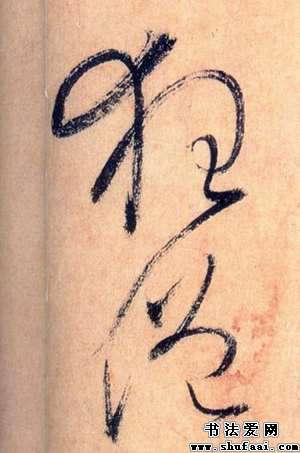 狂僧
书法爱网
www.shufaai.com